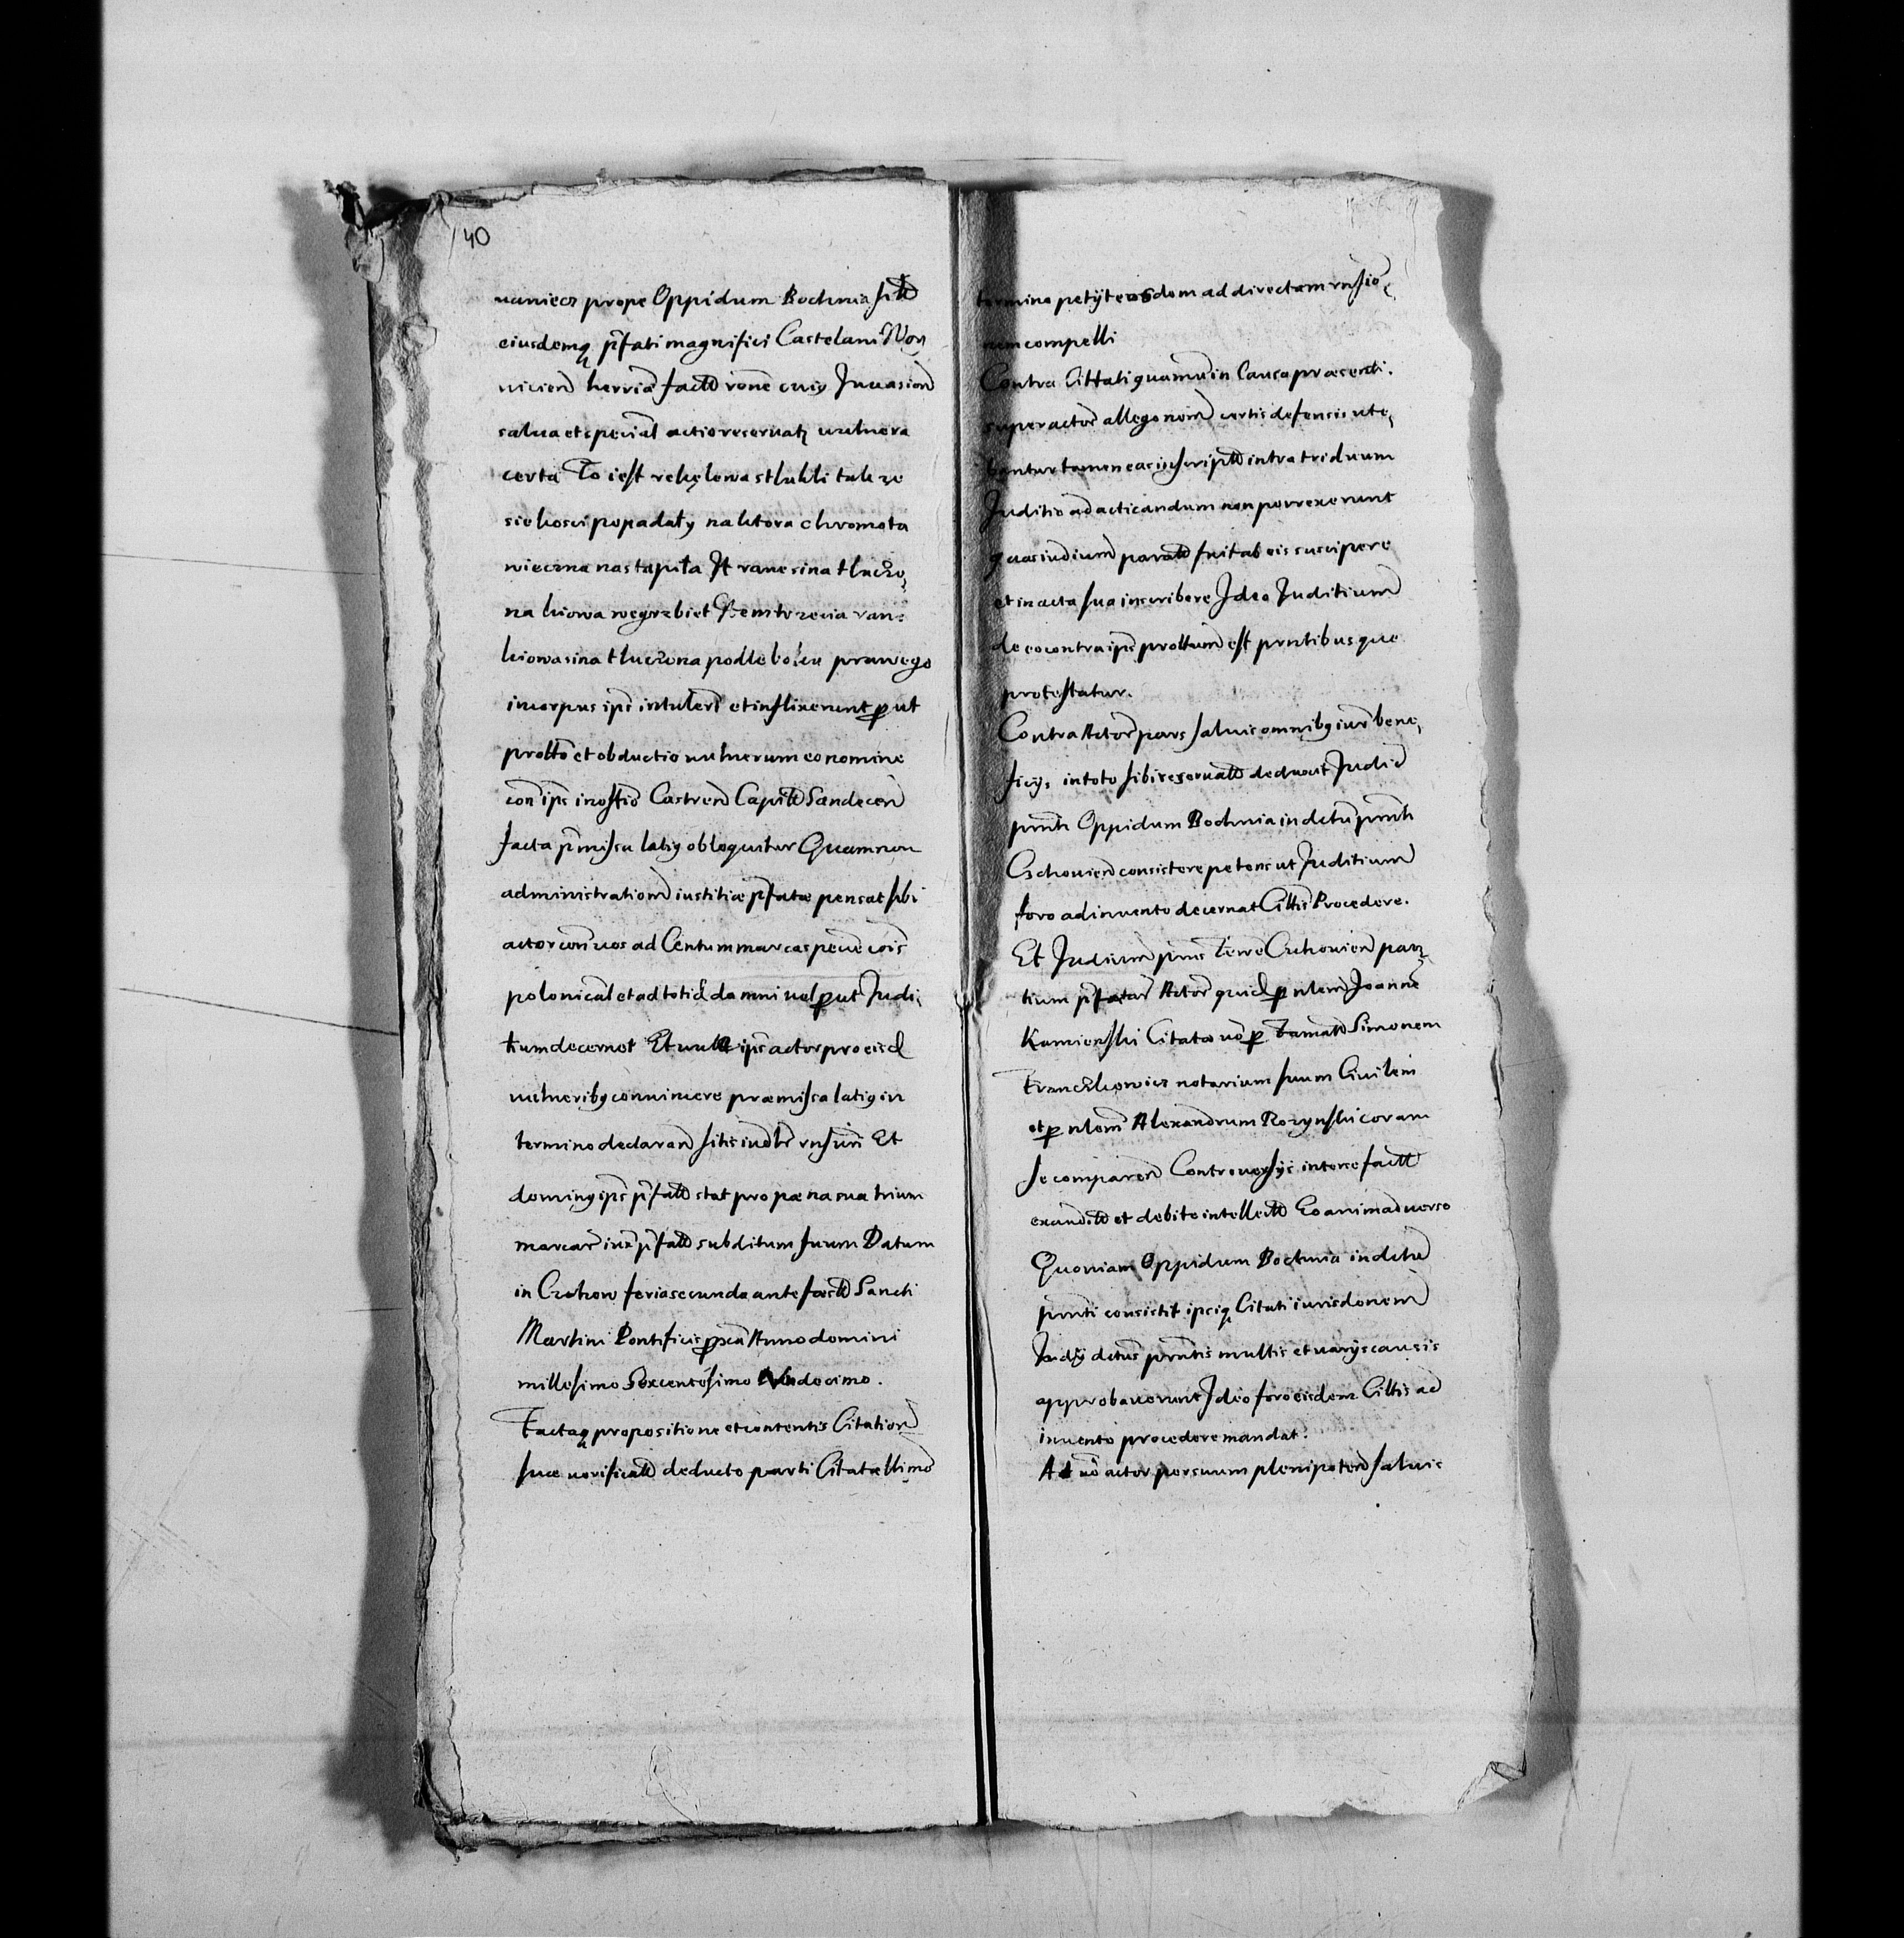 40
naniecz prope Oppidum Bochnia sitt
eiusdemq pfati magnifici Castelani Woy
nicien herviā factt rone cuiy Juuasion
salua et special actio reseruatʒ uulnera
certa To iest rekę lewa stlukli tak ze
sie kosci popadały na ktora chromota
wieczna nastąpiła It rane sina tluczo,
na kiowa wegrzbiet Item trzecia ran
kiowa sina tluczona podle boku prawego
in corpus ips intuler et inflixerunt put
protto et obductio uulnerum eo nomine
con ips in offio Castren Capitt Sandecen
facta pmissa latiy obloquitur Quam non
administration iustitiæ pfatæ pensat sibi
actor con uos ad Centum marcas pecuē cois
polonical et ad totid damni uel put Judi,
tium decernet Et uult ips actor pro eisd
uulneribq conuincere præmissa latiq in
termino declaran sitis iudtr rnsuri Et
dominq ips pfatt stat pro pæna sua trium
marcar iux pfatt subditum suum Datum
in Czchow feria secunda ante festt Sancti
Martini Pontificis pxā Anno domini
millesimo Sexcentesimo Undecimo.
Factaq propositione et contentis Citation
suæ uerificatt deducto parti Citatæ ttimo
termino petijt eosdem ad directam rnsio,
nem compelli
Contra Cittati quamuis in Causa præsenti.
super actor allegonem certis defensis ute,
bantur tamen eas in scriptt intra triduum
Juditio ad acticandum non porrexerunt
quas iudium paratt fuit ab eis suscipere
et in acta sua inscribere Ideo Juditium
de eo contra ips prottum est prntibusque
protestatur.
Contra Actor pars saluis omnibq iur bene,
ficijs in toto sibi reseruatt deducit Judici
prnti Oppidum Bochnia in dctu prnti
Czchouien consistere petens ut Juditium
foro adinuento decernat Cittis Procedere.
Et Judium prns Terre Czchouien par
tium pfatar Actor quid p nlem Joanne
Kamienski Citatæ uo p famatt Simonem
Franczkowicz notarium suum Ciuilem
et p nlem Alexandrum Rozynski coram
se comparen Controuersijs inter se factt
exauditt et debite intellectt Eo animaduerso
Quoniam Oppidum Bochnia in dctu
prnti consistit ipsiq Citati iurisdonem
Judij dctus prntis multis et uarijs causis
approbauerunt Ideo foro eisdem Cittis ad
inuento procedere mandat.
At uo actor per suum plenipoten saluis